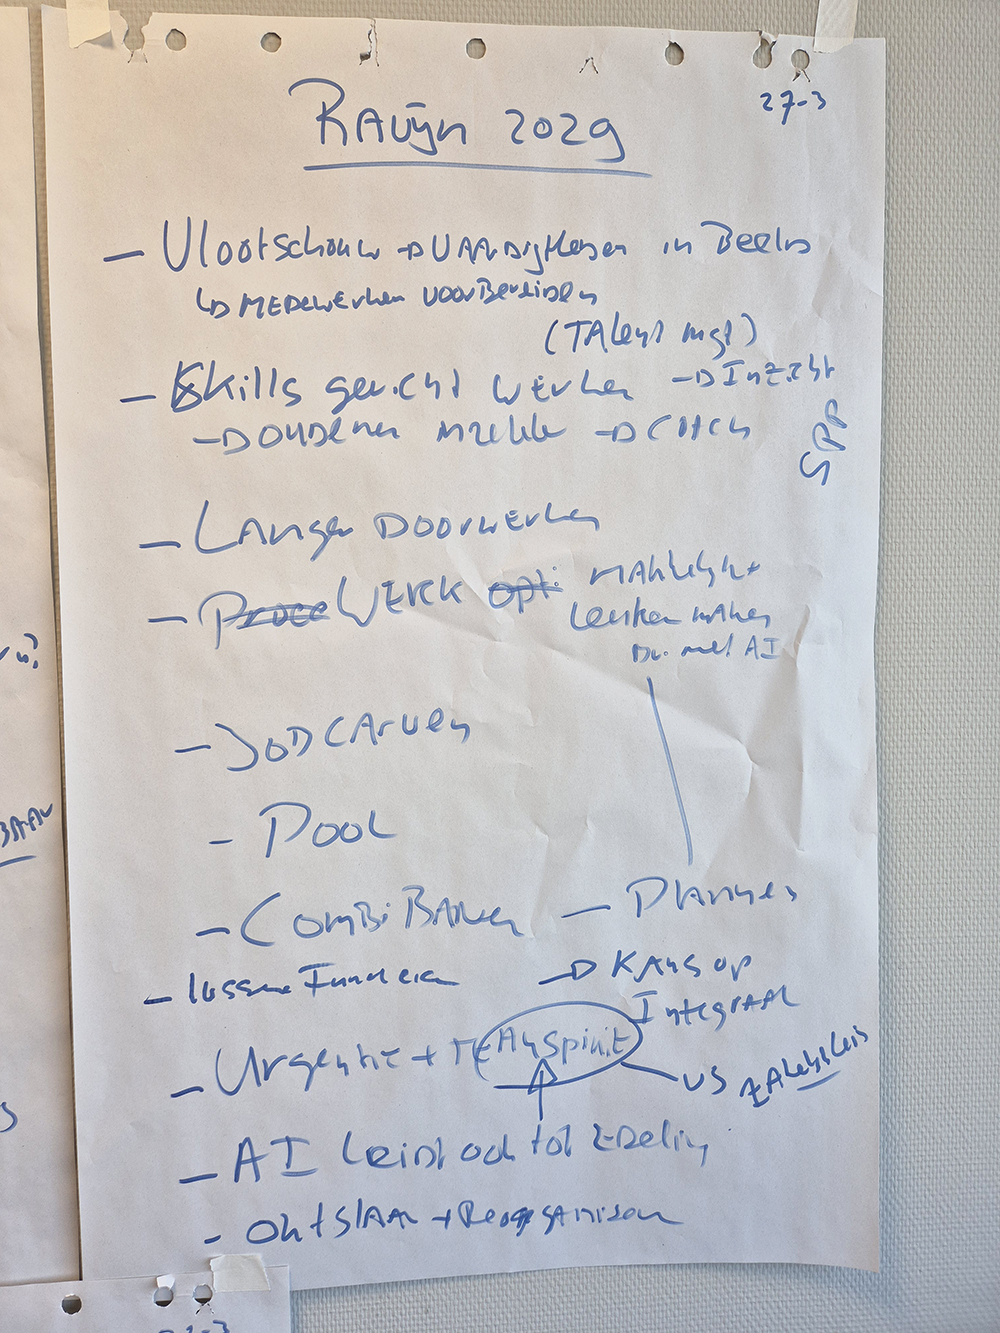 27-3
Ravijn 2029
- Vlootschouw → Vaardigheden in Beeld
↳ Medewerker voorbereiden
(Talent mgt)
- Skills gericht werken → Inzicht
→ Ouderen → Coach
SPP
- Langer doorwerken
- Werk makkelijk +
leuker maken
met AI
- Jobcarven
- Pool
- Combibanen - Planner
- lossere Functies → Kans op
Integraal
- Urgentie + teamspirit
vs zakelijkheid
- AI leidt ook tot
- Ontslaan + Reorganiseren